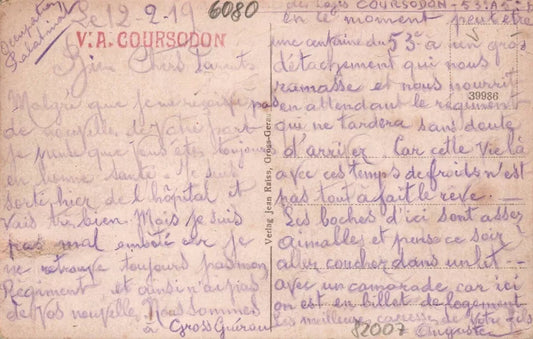 Occupation
Palatinat
Le 12-2-19
6080
V.A. COURSODON
Bien Chers Parents
Malgré que je ne reçoive pas
de nouvelles de Votre part
je pense que vous êtes toujours
en bonne santé. Je suis
sorti hier de l'hôpital et
vais très bien. Mais je suis
pas mal embêté car je
ne retrouve toujours pas mon
Régiment et ainsi n'ai pas
de Vos nouvelles. Nous sommes
à Gross Guérau
Verlag Jean Raiss, Gross-Gerau.
39986
des Logis COURSODON - 53 A.C.
en le moment peut être
une centaine du 53e a un gros
détachement qui nous
ramasse et nous nourrit
en attendant le régiment
qui ne tardera sans doute
d'arriver. Car cette vie là
avec ces temps de froids n'est
pas tout à fait le rêve —
Les boches d'ici sont assez
aimables et pense ce soir
aller coucher dans un lit --
avec un camarade, car ici
on est en billet de logement
Les meilleures caresses de Votre fils
Auguste
82007